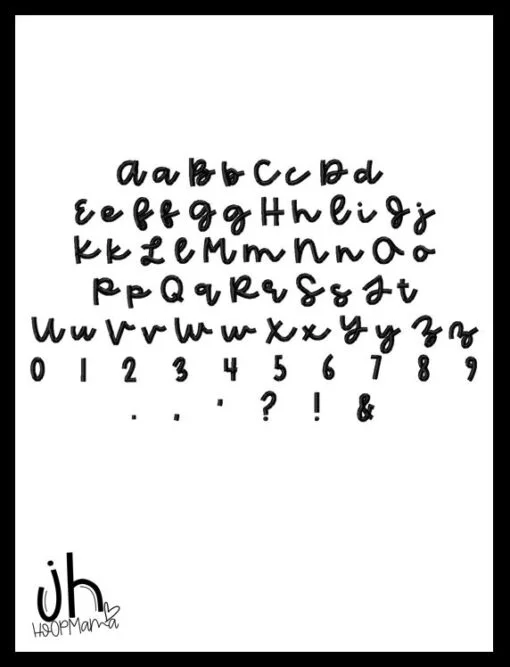 Aa Bb Cc Dd
Ee Ff Gg Hh Ii Jj
Kk Ll Mm Nn Oo
Pp Qq Rr Ss Tt
Uu Vv Ww Xx Yy Zz
0 1 2 3 4 5 6 7 8 9
. , ' ? ! &
jh
HOOPMama